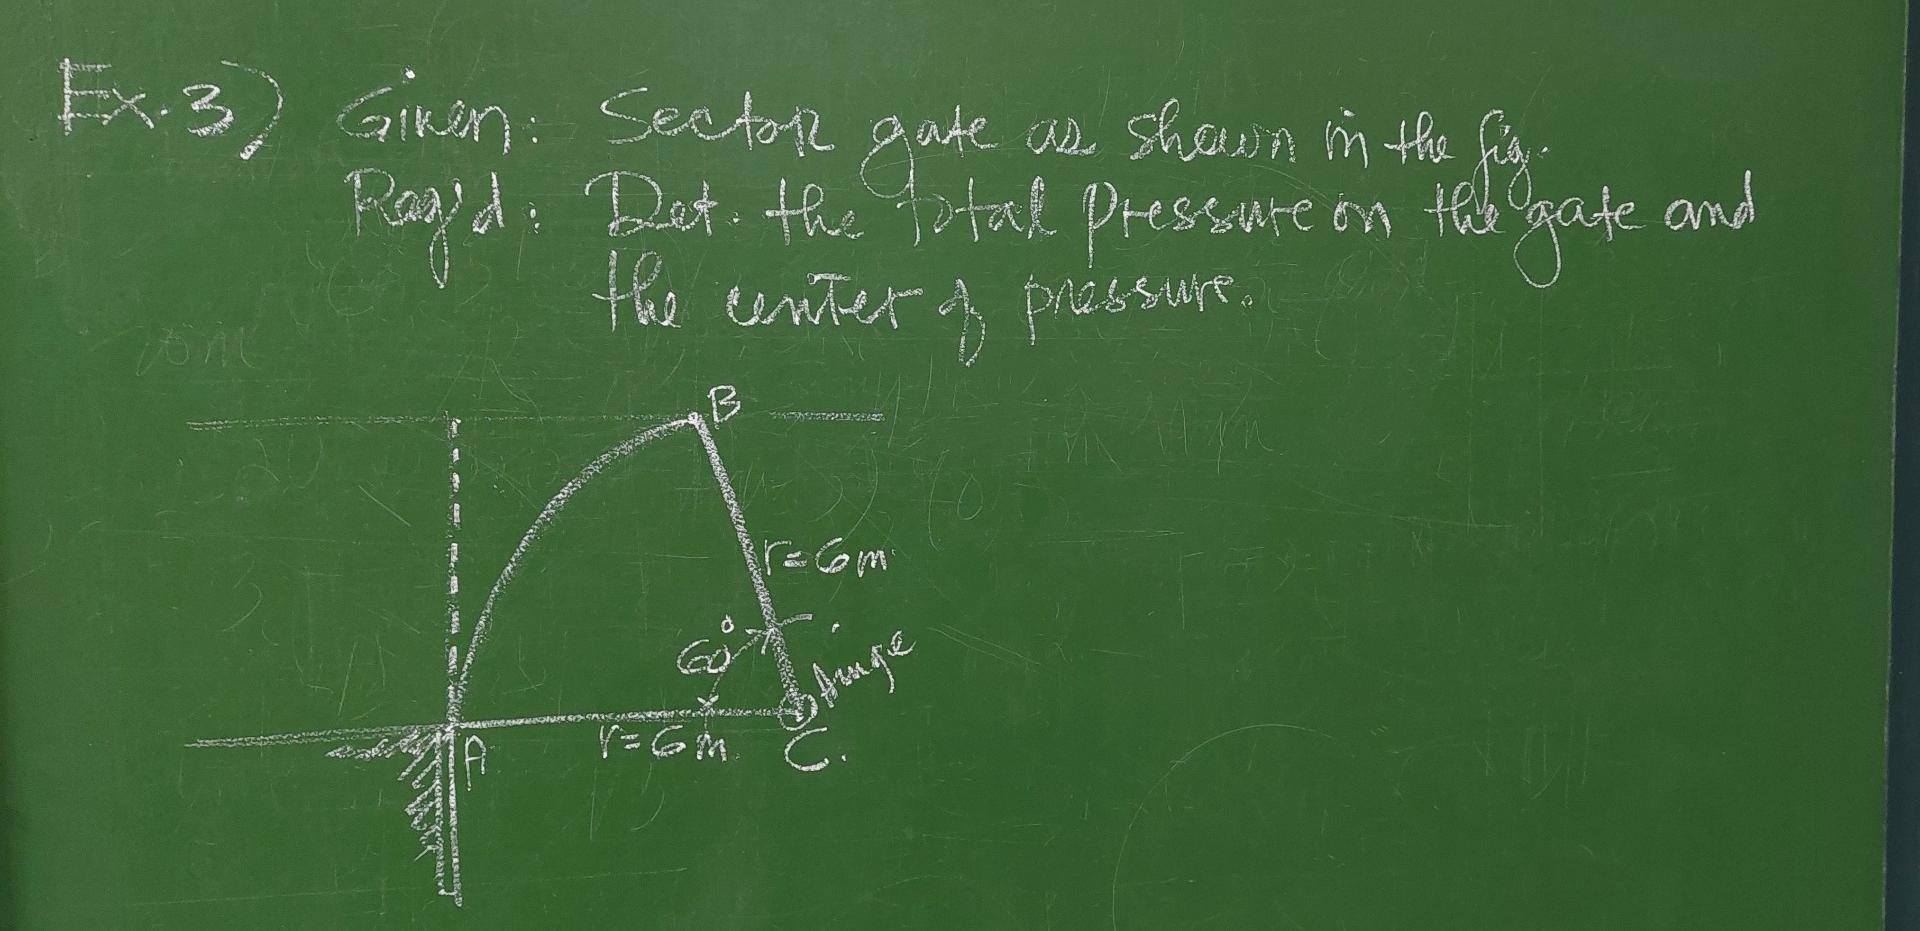 Ex.3) Given: Sector gate as shown in the fig.
Req'd: Det. the total pressure on the gate and
the center of pressure.
B
r=6m
60°
hinge
A
r=6m
C.